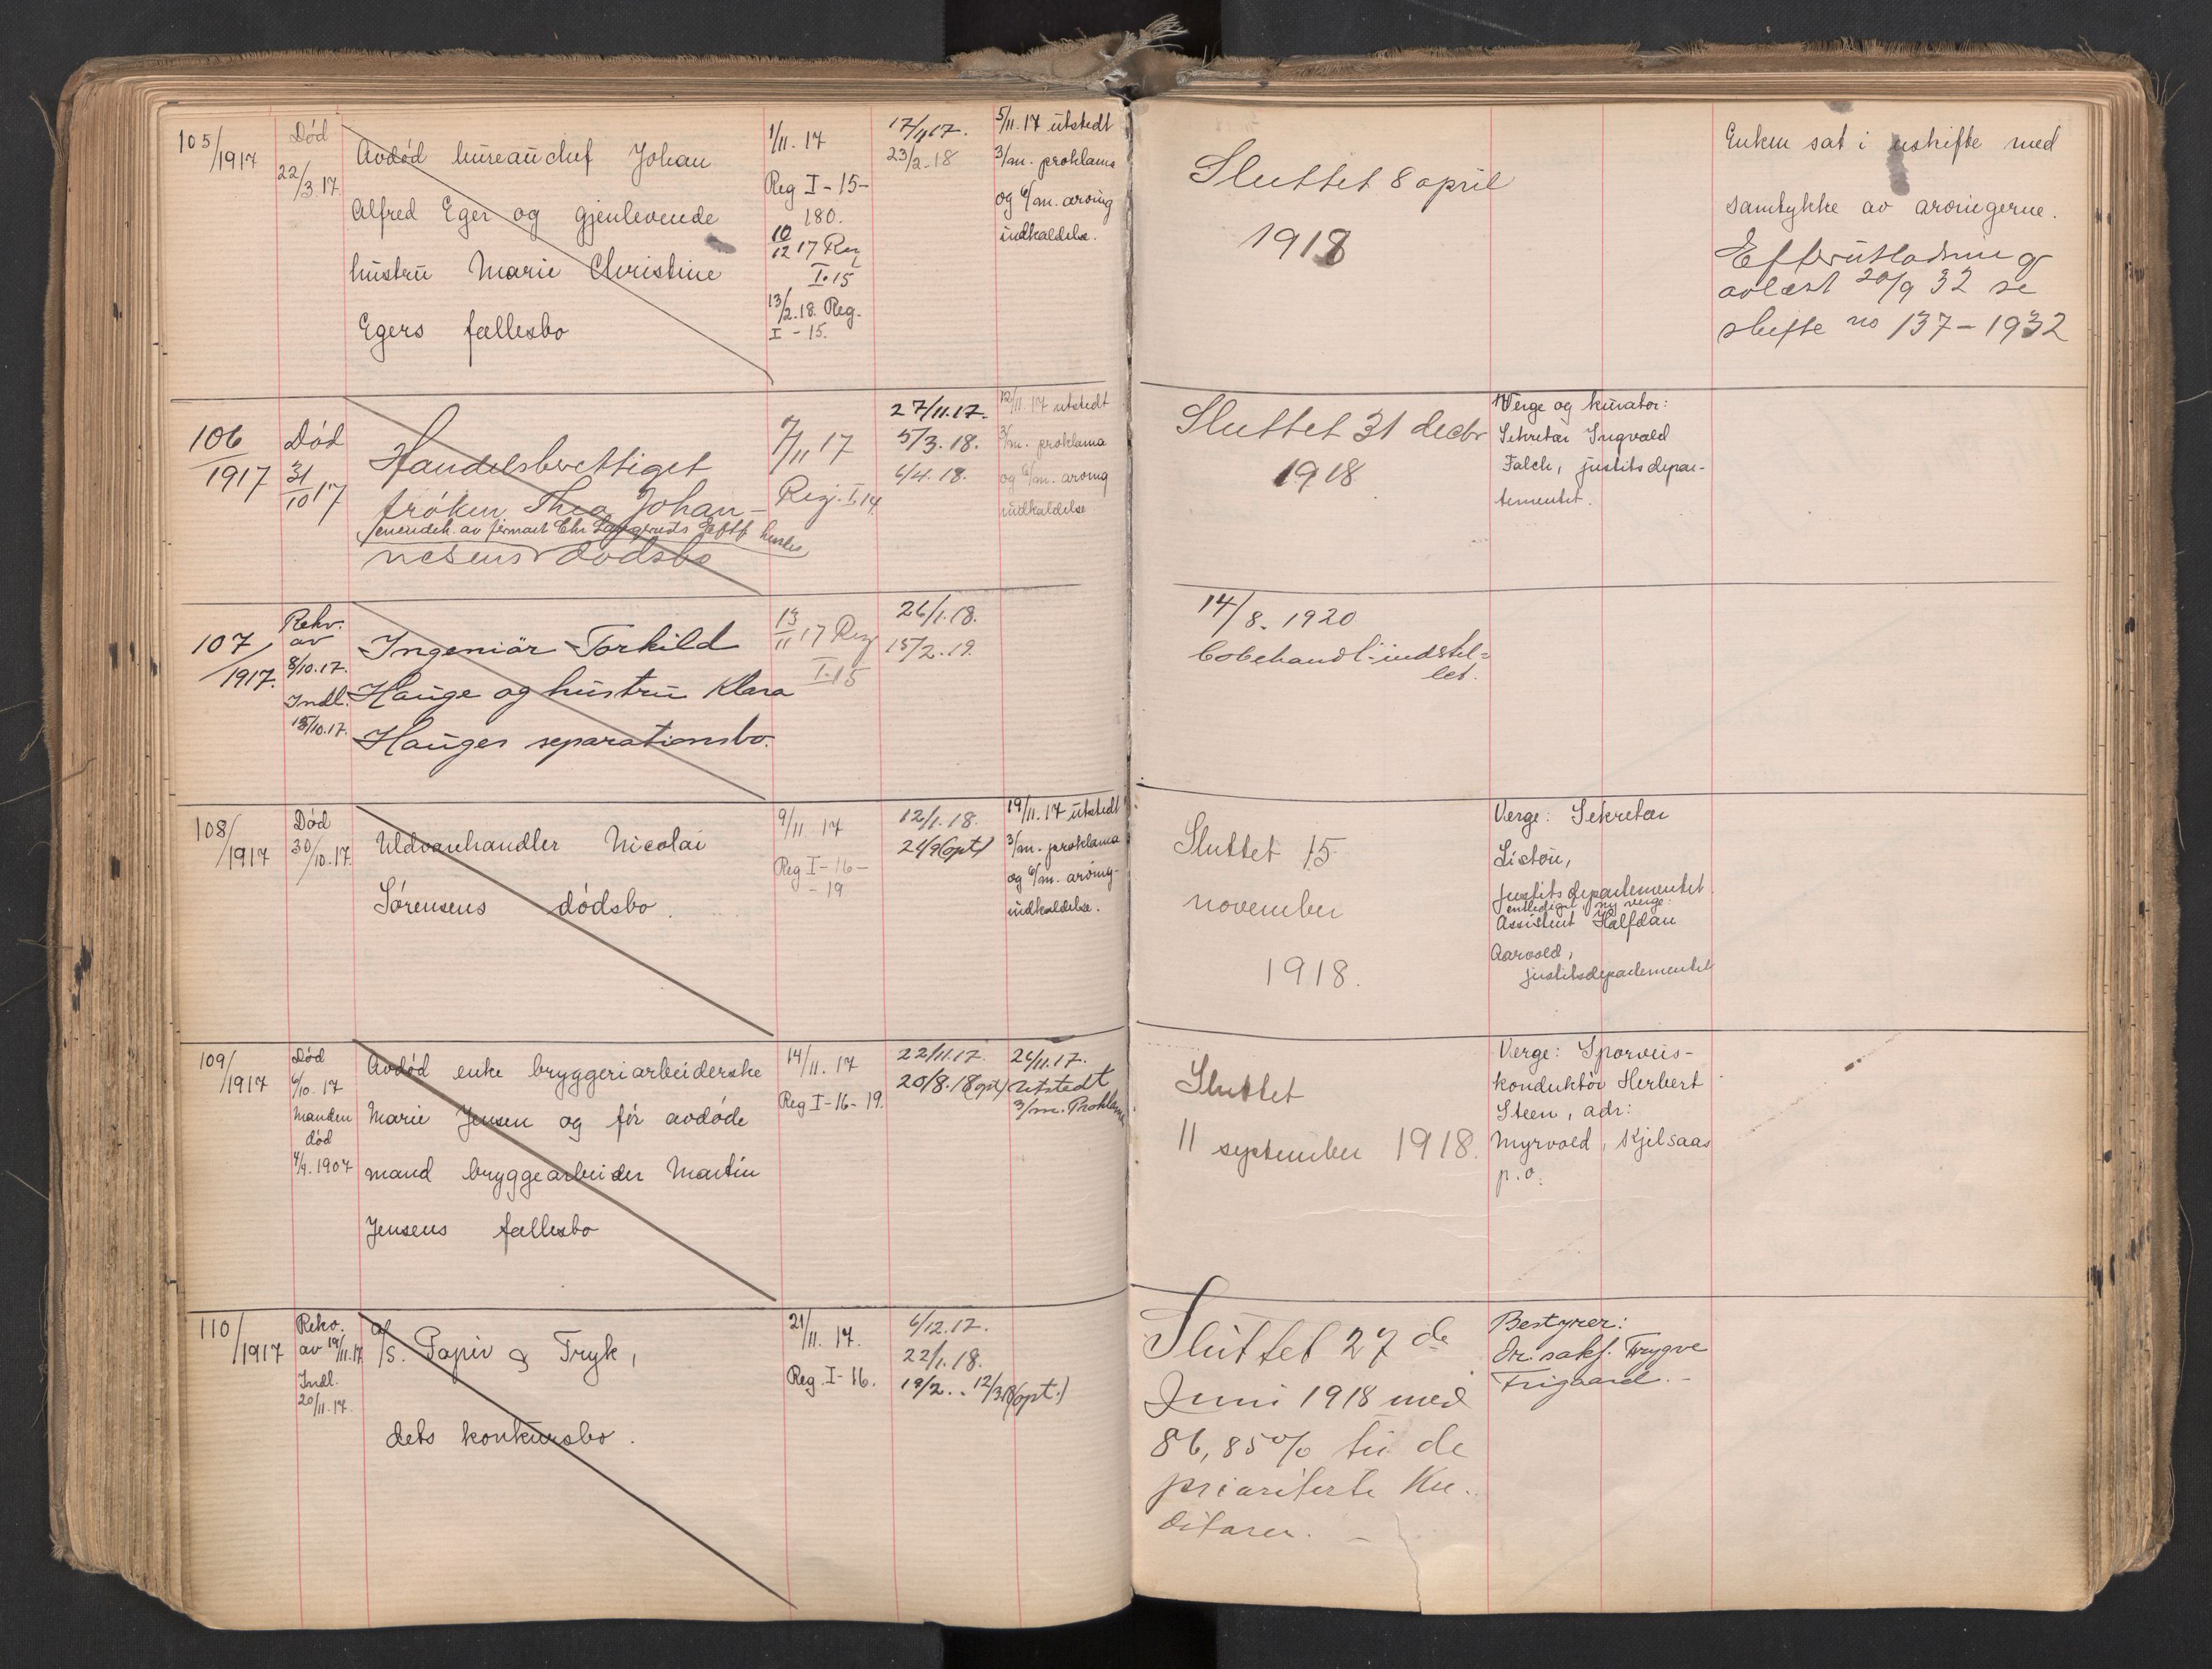 105/1917
Død
22/3.17.
Avdød bureauchef Johan
Alfred Eger og gjenlevende
hustru Marie Christine
Egers fællesbo
1/11. 17
Reg I-15-
180.
10/12 17 Reg
I.15
13/2.18. Reg.
I-15.
17/11 17.
23/2-18
5/11.17 utstedt
3/m. proklama
og 6/m. arving
indkaldelse.
Sluttet 8 april
1918
Enken sat i uskifte med
samtykke av arvingerne.
Efterutlodning
avlæst 20/9 32 se
skifte no 137-1932
106/1917
Død
31/10 17
Handelsberettiget
frøken Thea Johan-
nesens dødsbo
7/11 17
Reg. I.14
27/11.17.
5/3.18.
6/4.18.
12/11.17 utstedt
3/m. proklama
og 6/m. arving
indkaldelse
Sluttet 31 decbr
1918
Verge og kurator:
Sekretær Ingvald
Falch, justitsdepar-
tementet.
107/1917.
Rekv.
av
8/10.17.
Indl.
15/10.17.
Ingeniör Torkild
Hauge og hustru Klara
Hauges separationsbo.
13/11 17 Reg
I.15
26/1.18.
15/2.19.
14/8. 1920
bobehandl. indstil=
let.
108/1917
Død
30/10.17.
Uldvarehandler Nicolai
Sørensens dødsbo.
9/11 17
Reg I-16-
-19
12/1.18.
24/9 (opt)
19/11.17 utstedt
3/m. proklama
og 6/m. arving-
indkaldelse.
Sluttet 15
november
1918.
Verge: Sekretær
Listou,
Justitsdepartementet.
entlediget, ny verge:
Assistent Halfdan
Aarvold,
justitsdepartementet
109/1917
Død
6/10.17
Manden
død
4/9.1907
Avdød enke bryggeriarbeiderske
Marie Jensen og før avdøde
mand bryggearbeider Martin
Jensens fællesbo
14/11. 17
Reg I-16-19.
22/11.17.
20/8.18 (opt)
26/11.17.
Utstedt
3/m. Proklama
Sluttet
11 september 1918.
Verge: Sporveis-
konduktør Herbert
Steen, adr:
Myrvold, Kjelsaas
p.o.
110/1917
Rekv.
av 19/11.17
Indl.
20/11.17.
A/S. Papir & Tryk,
dets konkursbo.
21/11. 17.
Reg. I-16.
6/12.17.
22/1.18.
19/2.. 12/3.18 (opt.)
Sluttet 27 de
Juni 1918 med
86,85% til de
prioriterte Kre-
ditorer. -
Bestyrer:
Or. sakf. Trygve
Frigaard. -